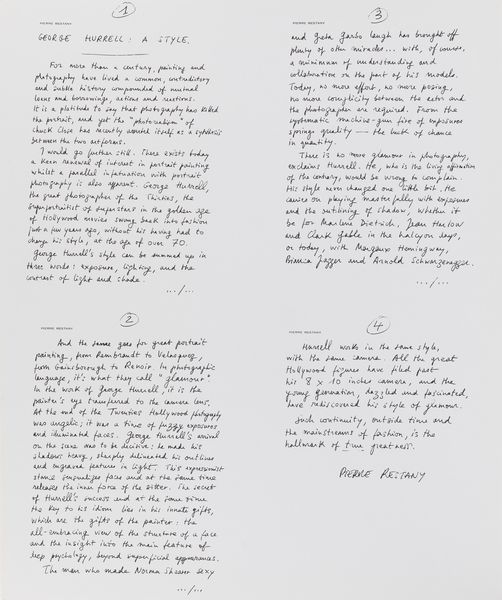 1
PIERRE RESTANY
GEORGE HURRELL : A STYLE.
For more than a century, painting and
photography have lived a common, contradictory
and subtle history compounded of mutual
loans and borrowings, actions and reactions.
It is a platitude to say that photography has killed
the portrait, and yet the "photorealism" of
Chuck Close has recently asserted itself as a synthesis
between the two artforms.
I would go further still. There exist today
a keen renewal of interest in portrait painting
whilst a parallel infatuation with portrait
photography is also apparent. George Hurrell,
the great photographer of the Thirties, the
superportraitist of superstars in the golden age
of Hollywood movies swung back into fashion
just a few years ago, without his having had to
change his style, at the age of over 70.
George Hurrell's style can be summed up in
three words : exposure, lighting, and the
contrast of light and shade.
.../...
2
PIERRE RESTANY
And the same goes for great portrait
painting, from Rembrandt to Velasquez,
from Gainsborough to Renoir. In photographic
language, it's what they call "glamour".
In the work of George Hurrell, it is the
painter's eye transferred to the camera lens.
At the end of the Twenties Hollywood photography
was angelic; it was a time of fuzzy exposures
and illuminated faces. George Hurrell's arrival
on the scene was to be decisive : he made his
shadows heavy, sharply delineated his outlines
and engraved features in light. This expressionist
stance sensualizes faces and at the same time
releases the inner force of the sitter. The secret
of Hurrell's success and at the same time
the key to his idiom lies in his innate gifts,
which are the gifts of the painter : the
all-embracing view of the structure of a face
and the insight into the main feature of
deep psychology, beyond superficial appearances.
The man who made Norma Shearer sexy
.../...
3
PIERRE RESTANY
and Greta Garbo laugh has brought off
plenty of other miracles... with, of course,
a minimum of understanding and
collaboration on the part of his models.
Today, no more effort, no more posing,
no more complicity between the actor and
the photographer are required. From the
systematic machine-gun fire of exposures
springs quality — the luck of chance
in quantity.
There is no more glamour in photography,
exclaims Hurrell. He, who is the living affirmation
of the century, would be wrong to complain.
His style never changed one little bit. He
carries on playing masterfully with exposures
and the outlining of shadow, whether it
be for Marlene Dietrich, Jean Harlow
and Clark Gable in the halcyon days,
or today, with Margaux Hemingway,
Bianca Jagger and Arnold Schwarzenegger.
.../...
4
PIERRE RESTANY
Hurrell works in the same style,
with the same camera. All the great
Hollywood figures have filed past
his 8 x 10 inches camera, and the
young generation, dazzled and fascinated,
have rediscovered his style of glamour.
Such continuity, outside time and
the mainstreams of fashion, is the
hallmark of true greatness.
PIERRE RESTANY